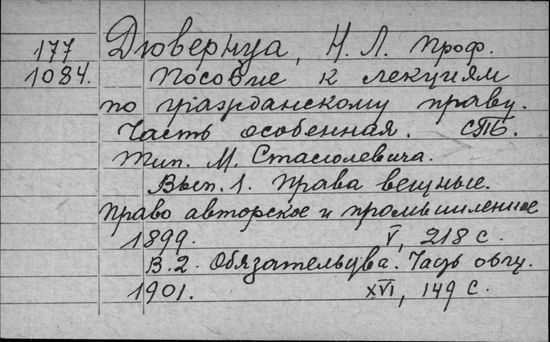 177 Дювернуа, Н. Л. проф.
1084. Пособие к лекциям
по гражданскому праву.
Часть особенная. СПБ.
Тип. М. Стасюлевича.
Вып. 1. Права вещные.
Право авторское и промышленное
1899. V, 218 с.
В. 2. Обязательства. Часть общ.
1901. XVI, 149 с.